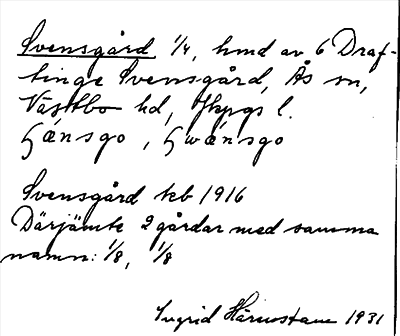 Svensgård 1/4, hmd av 6 Draf-
tinge Svensgård, Ås sn,
Västbo hd, Jkpgs l.
Svensgård teb 1916
Därjämte 2 gårdar med samma
namn: 1/8, 1/8
Ingrid 1931